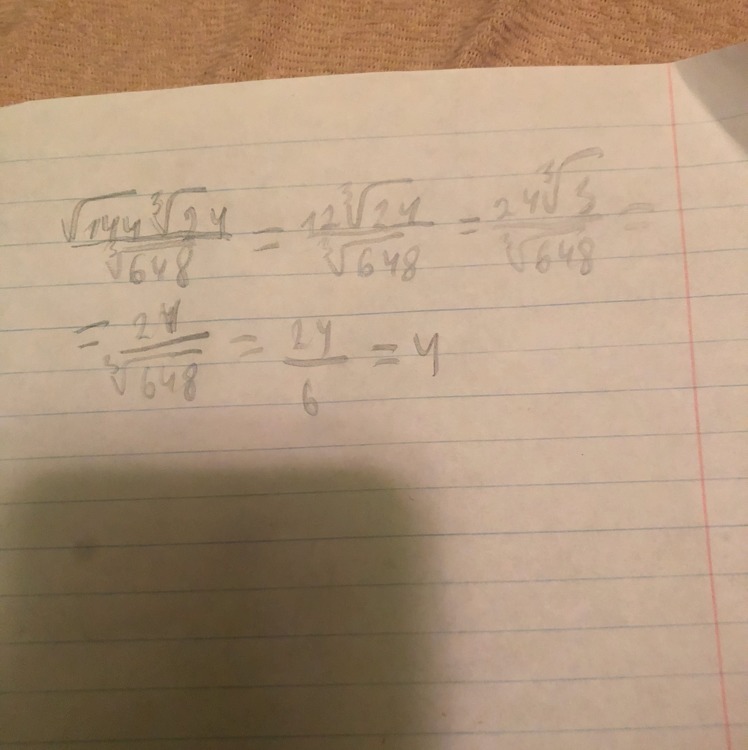 √144 ∛24 / ∛648 = 12 ∛24 / ∛648 = 24 ∛3 / ∛648 =
= 24 / ∛648 = 24 / 6 = 4